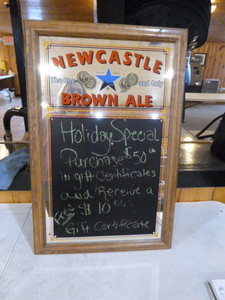 NEWCASTLE
The One and Only
BROWN ALE
Holiday Special
Purchase $50.00
in gift Certificates
and Receive a
Free $10.00
Gift Certificate